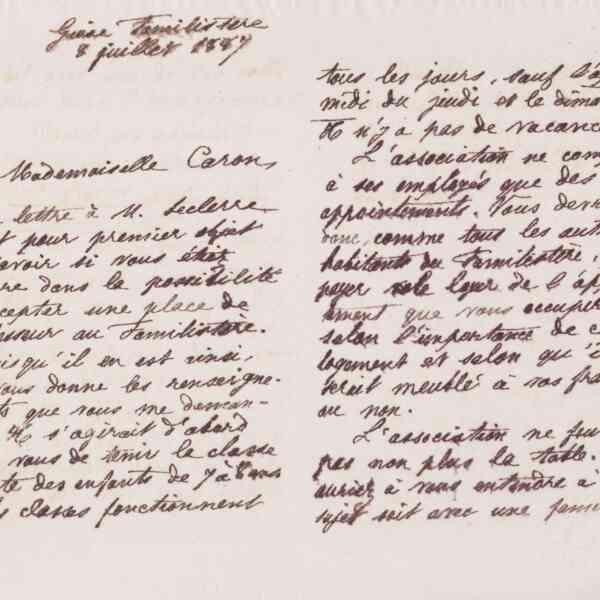 Guise Familistere
8 juillet 1887
Mademoiselle Caron,
lettre à M. Leclerre
t pour premier objet
avoir si vous étiez
re dans la possibilité
ccepter une place de
sseur au Familistère.
isqu'il en est ainsi,
vous donne les renseigne-
ts que vous me deman-
Il s'agirait d'abord
vous de tenir la classe
te des enfants de 7 à 8 ans
s classes fonctionnent
tous les jours, sauf l'a
midi du jeudi et le dima
Il n'y a pas de vacanc
L'association ne com
à ses employés que des
appointements. Vous devr
donc, comme tous les aut
habitants du Familistère,
payer le loyer de l'ap
ement que vous occuper
selon l'importance de c
logement et selon qu'i
serait meublé à vos fra
ou non.
L'association ne fou
pas non plus la table.
auriez à vous entendre à
sujet soit avec une fami